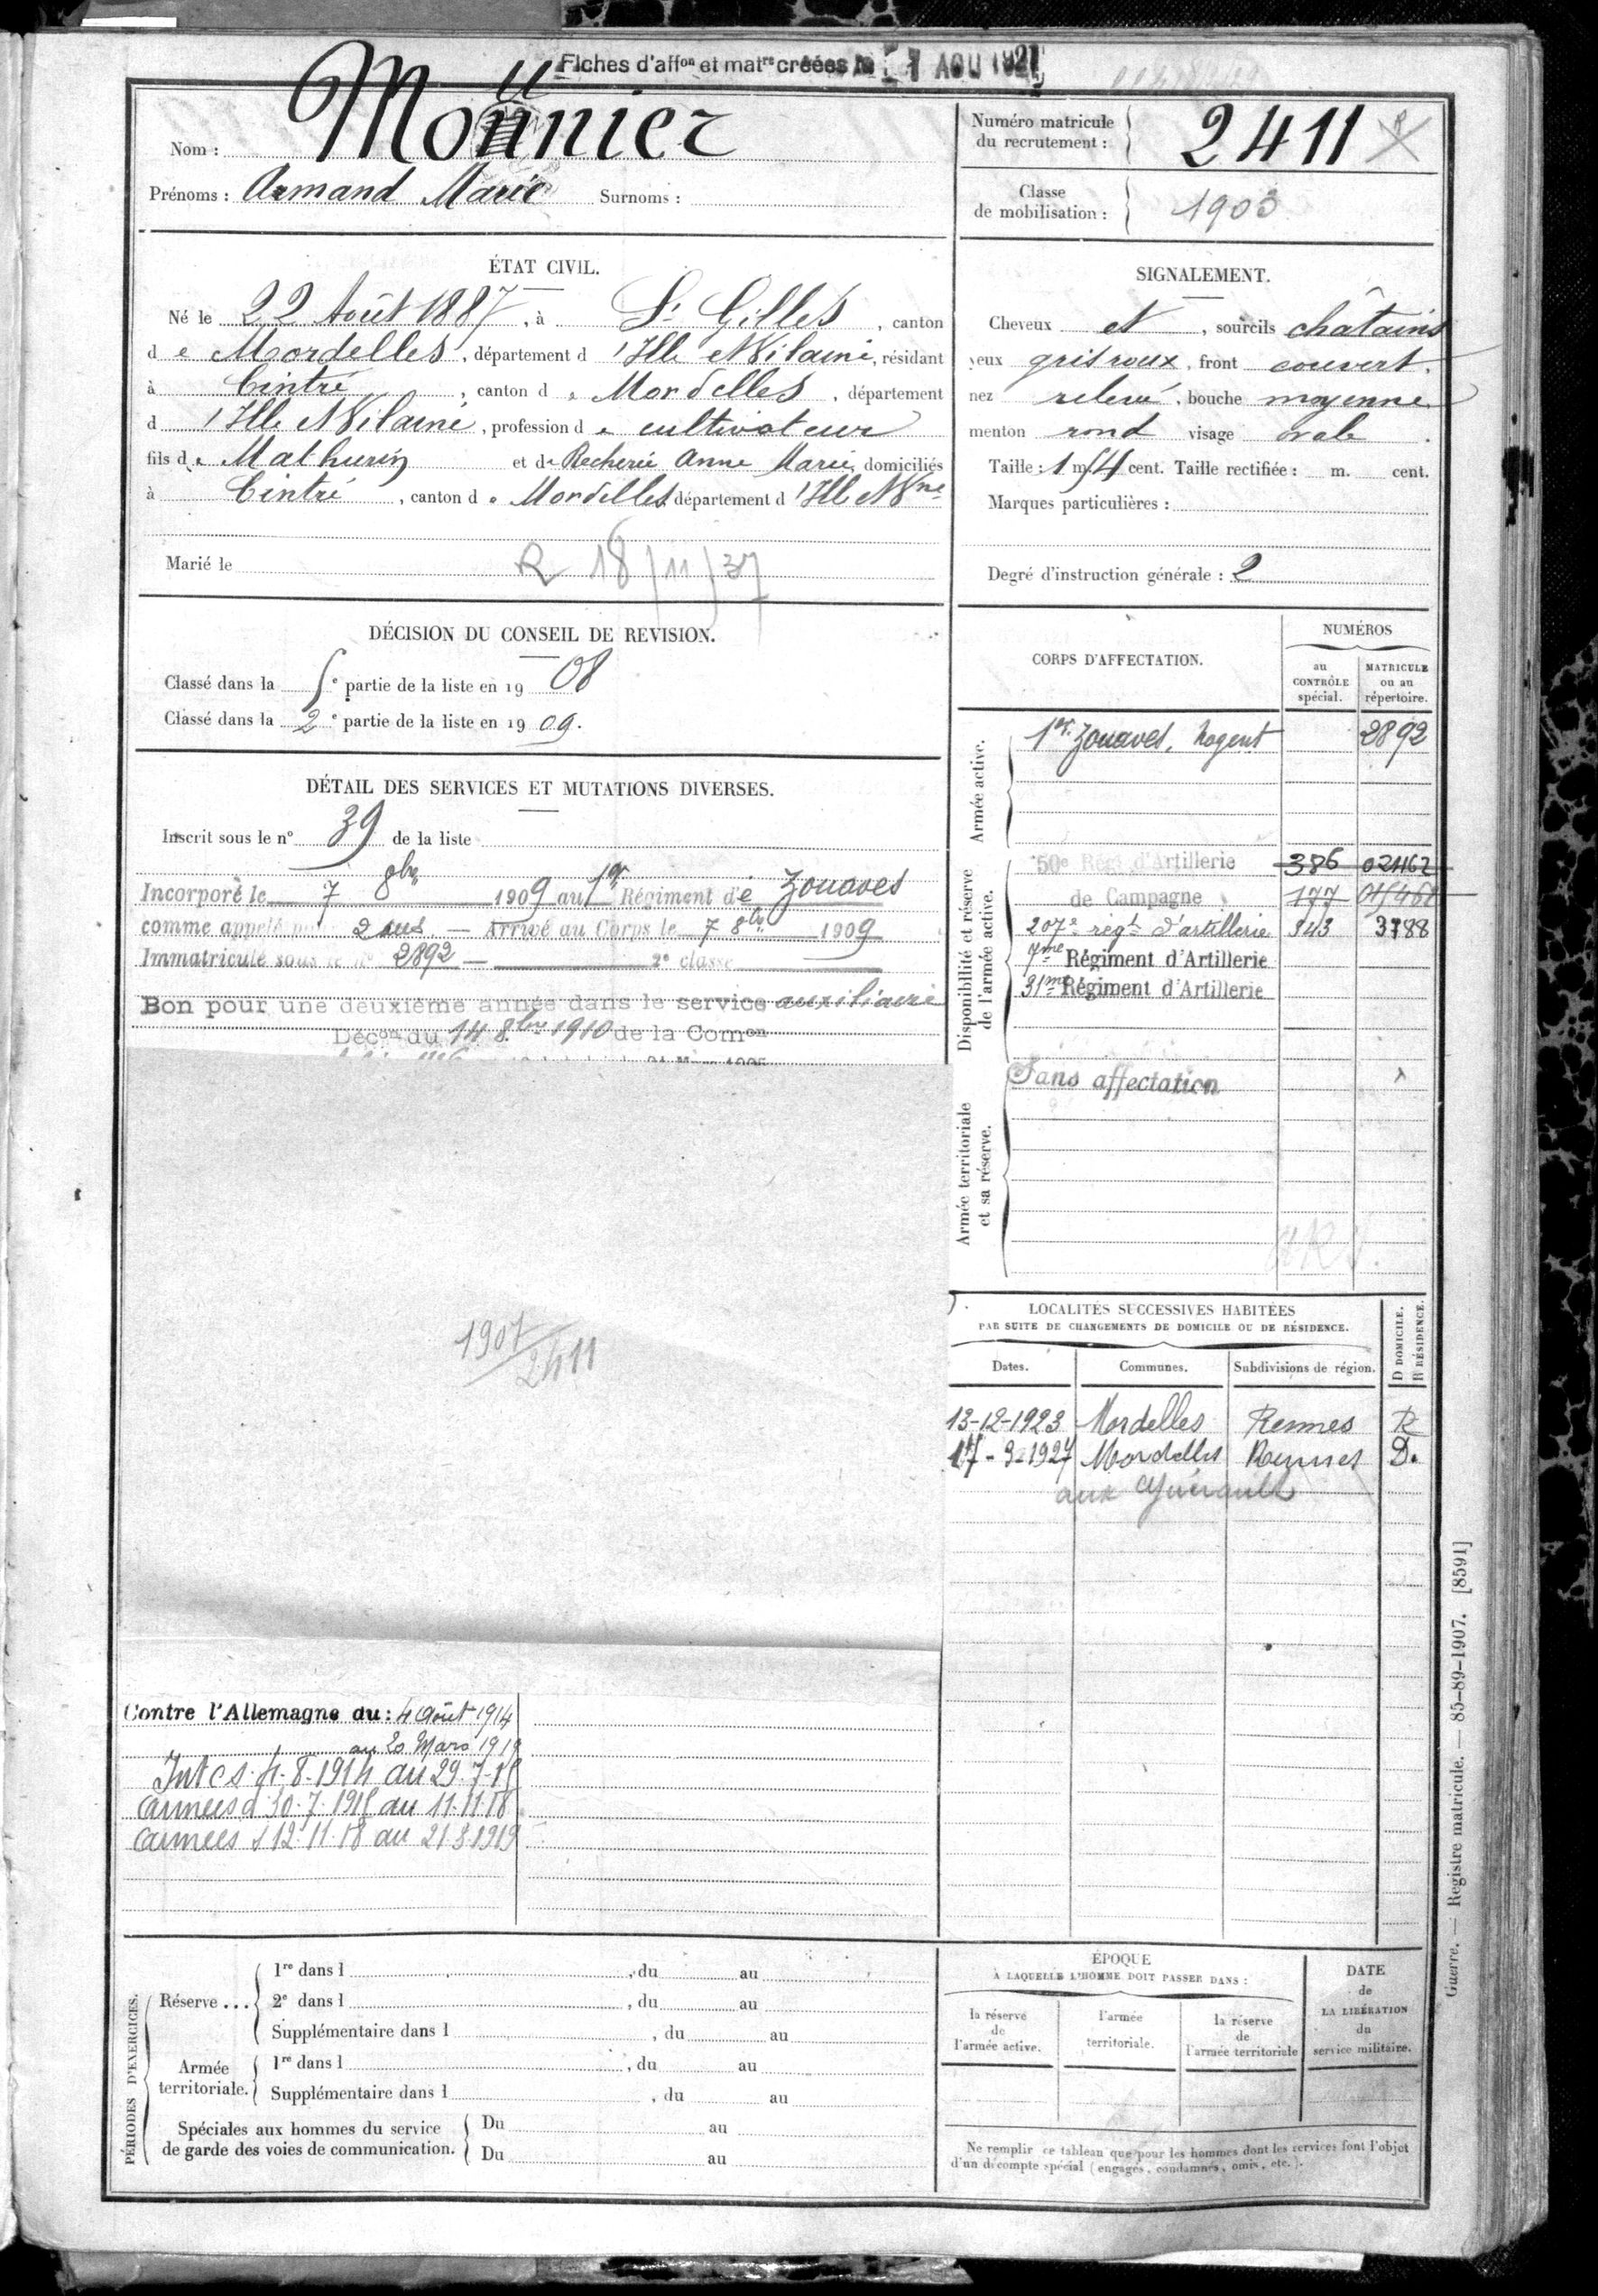 Fiches d'affon et matre créées le 1 AOU 1921
Nom : Mounier
Prénoms : Armand Marie Surnoms :
Numéro matricule
du recrutement : 2411
Classe
de mobilisation : 1903
ÉTAT CIVIL.
Né le 22 Août 1887, à St Gilles, canton
de Mordelles, département d'Ille et Vilaine, résidant
à Cintré, canton de Mordelles, département
d'Ille et Vilaine, profession de cultivateur
fils de Mathurin et de Recherie Anne Marie, domiciliés
à Cintré, canton de Mordelles, département d'Ille et Vne
Marié le
R 18/11/37
SIGNALEMENT.
Cheveux et, sourcils châtains
yeux gris roux, front couvert.
nez relevé, bouche moyenne
menton rond visage ovale.
Taille : 1 m. 54 cent. Taille rectifiée : m. cent.
Marques particulières :
Degré d'instruction générale : 2
DÉCISION DU CONSEIL DE REVISION.
Classé dans la 5e partie de la liste en 1908
Classé dans la 2e partie de la liste en 1909.
DÉTAIL DES SERVICES ET MUTATIONS DIVERSES.
Inscrit sous le n° 39 de la liste
Incorporé le 7 8bre 1909 au 1er Régiment de Zouaves
comme appelé pour 2 ans — Arrivé au Corps le 7 8bre 1909
Immatriculé sous le n° 2892 — 2e classe
Bon pour une deuxième année dans le service auxiliaire
Décon du 14 8bre 1910 de la Comon
1907/2411
Contre l'Allemagne du : 4 Août 1914
au 20 Mars 1919
Int CS. 4-8-1914 au 29-7-15
Armées d 30.7.1915 au 11.11.18
Armées s 12.11.18 au 21.3.1919
CORPS D'AFFECTATION.
NUMÉROS
au CONTRÔLE spécial.
MATRICULE ou au répertoire.
Armée active.
1er Zouaves, Nogent 2892
Disponibilité et réserve
de l'armée active.
50e Régt d'Artillerie 386 02462
de Campagne 177
207e régt d'artillerie 343 3788
7me Régiment d'Artillerie
31me Régiment d'Artillerie
Armée territoriale
et sa réserve.
Sans affectation
LOCALITÉS SUCCESSIVES HABITÉES
PAR SUITE DE CHANGEMENTS DE DOMICILE OU DE RÉSIDENCE.
Dates. Communes. Subdivisions de région. D DOMICILE. R RÉSIDENCE.
13-12-1923 Mordelles Rennes R
17-3-1927 Mordelles Rennes D.
aux
PÉRIODES D'EXERCICES.
Réserve ...
1re dans l , du au
2e dans l , du au
Supplémentaire dans l , du au
Armée
territoriale.
1re dans l , du au
Supplémentaire dans l , du au
Spéciales aux hommes du service
de garde des voies de communication.
Du au
Du au
ÉPOQUE
À LAQUELLE L'HOMME DOIT PASSER DANS :
la réserve
de
l'armée active.
l'armée
territoriale.
la réserve
de
l'armée territoriale
DATE
de
LA LIBÉRATION
du
service militaire.
Ne remplir ce tableau que pour les hommes dont les services font l'objet
d'un décompte spécial (engagés, condamnés, omis, etc.).
Guerre. — Registre matricule. — 85-89-1907. [8591]